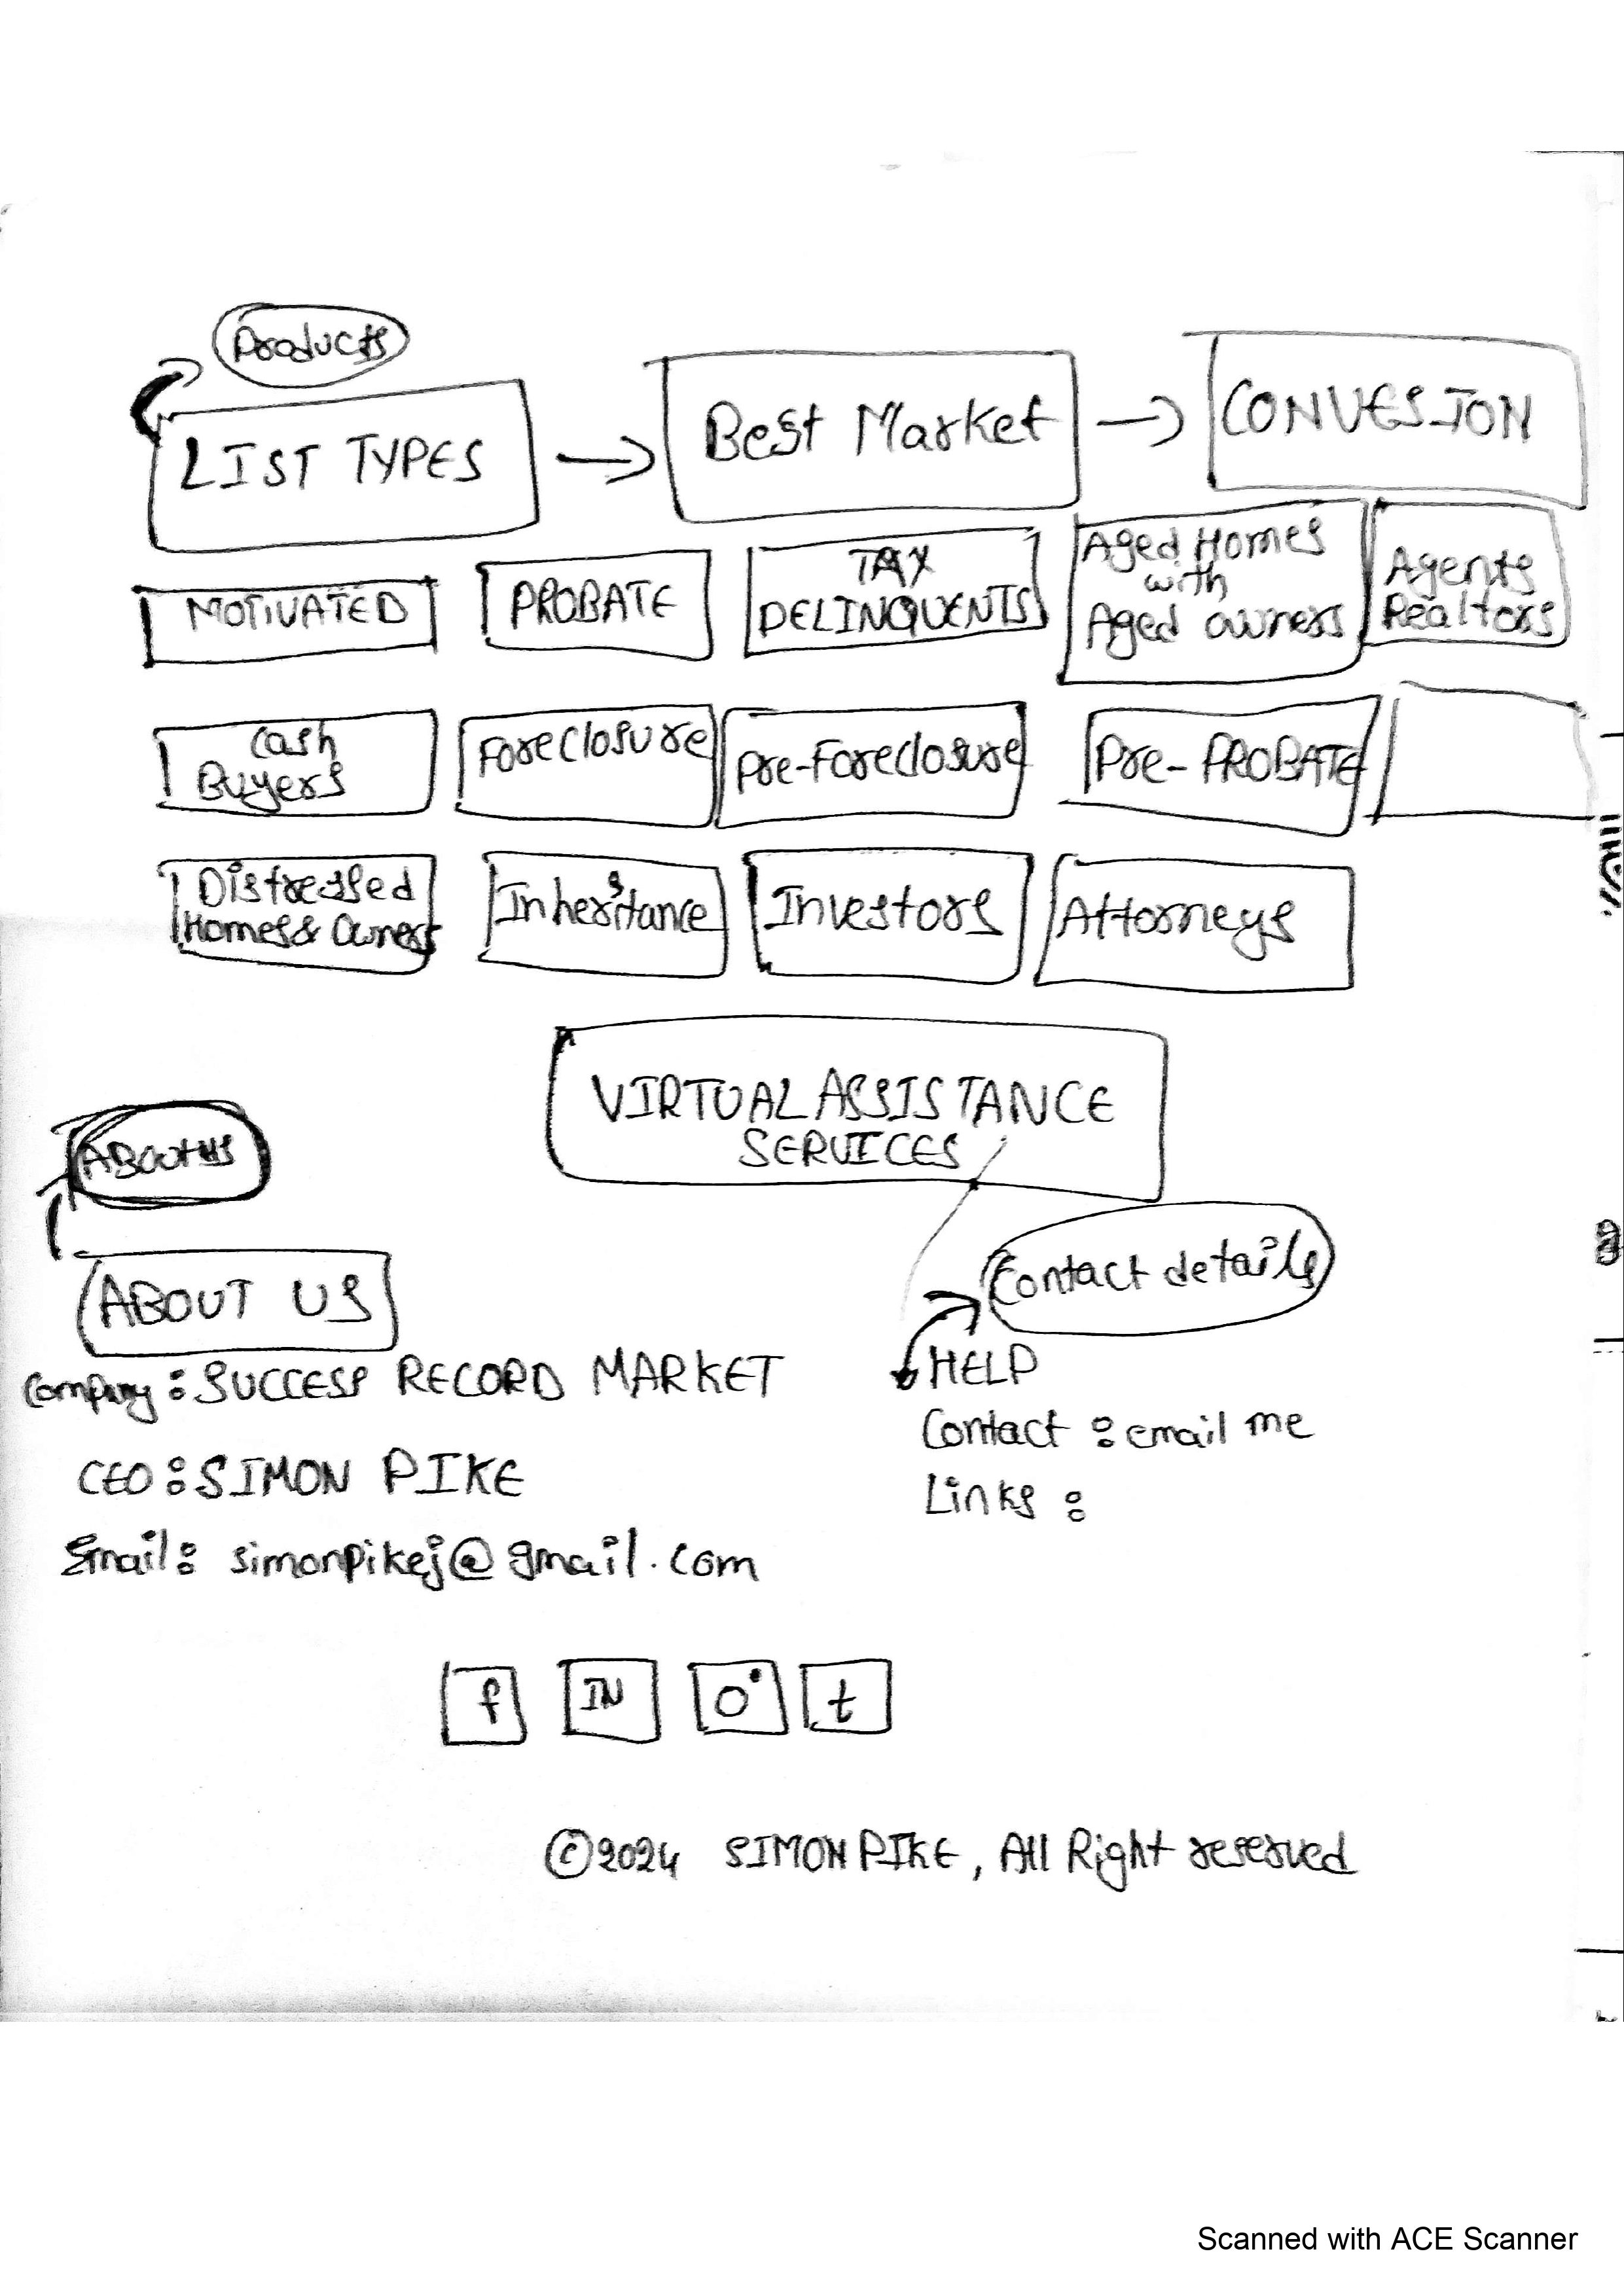 Products
LIST TYPES
Best Market
CONVESION
MOTIVATED
PROBATE
TAX
DELINQUENTS
Aged Homes
with
Aged owners
Agents
Realtors
Cash
Buyers
Foreclosure
Pre-Foreclosure
Pre-PROBATE
Distressed
Homes & Owners
Inheritance
Investors
Attorneys
VIRTUAL ASSISTANCE
SERVICES
ABOUT US
Contact details
ABOUT US
Company: SUCCESS RECORD MARKET
CEO: SIMON PIKE
Email: simonpikej@gmail.com
HELP
Contact: email me
Links:
f
IN
t
©2024 SIMON PIKE, All Right reserved
Scanned with ACE Scanner